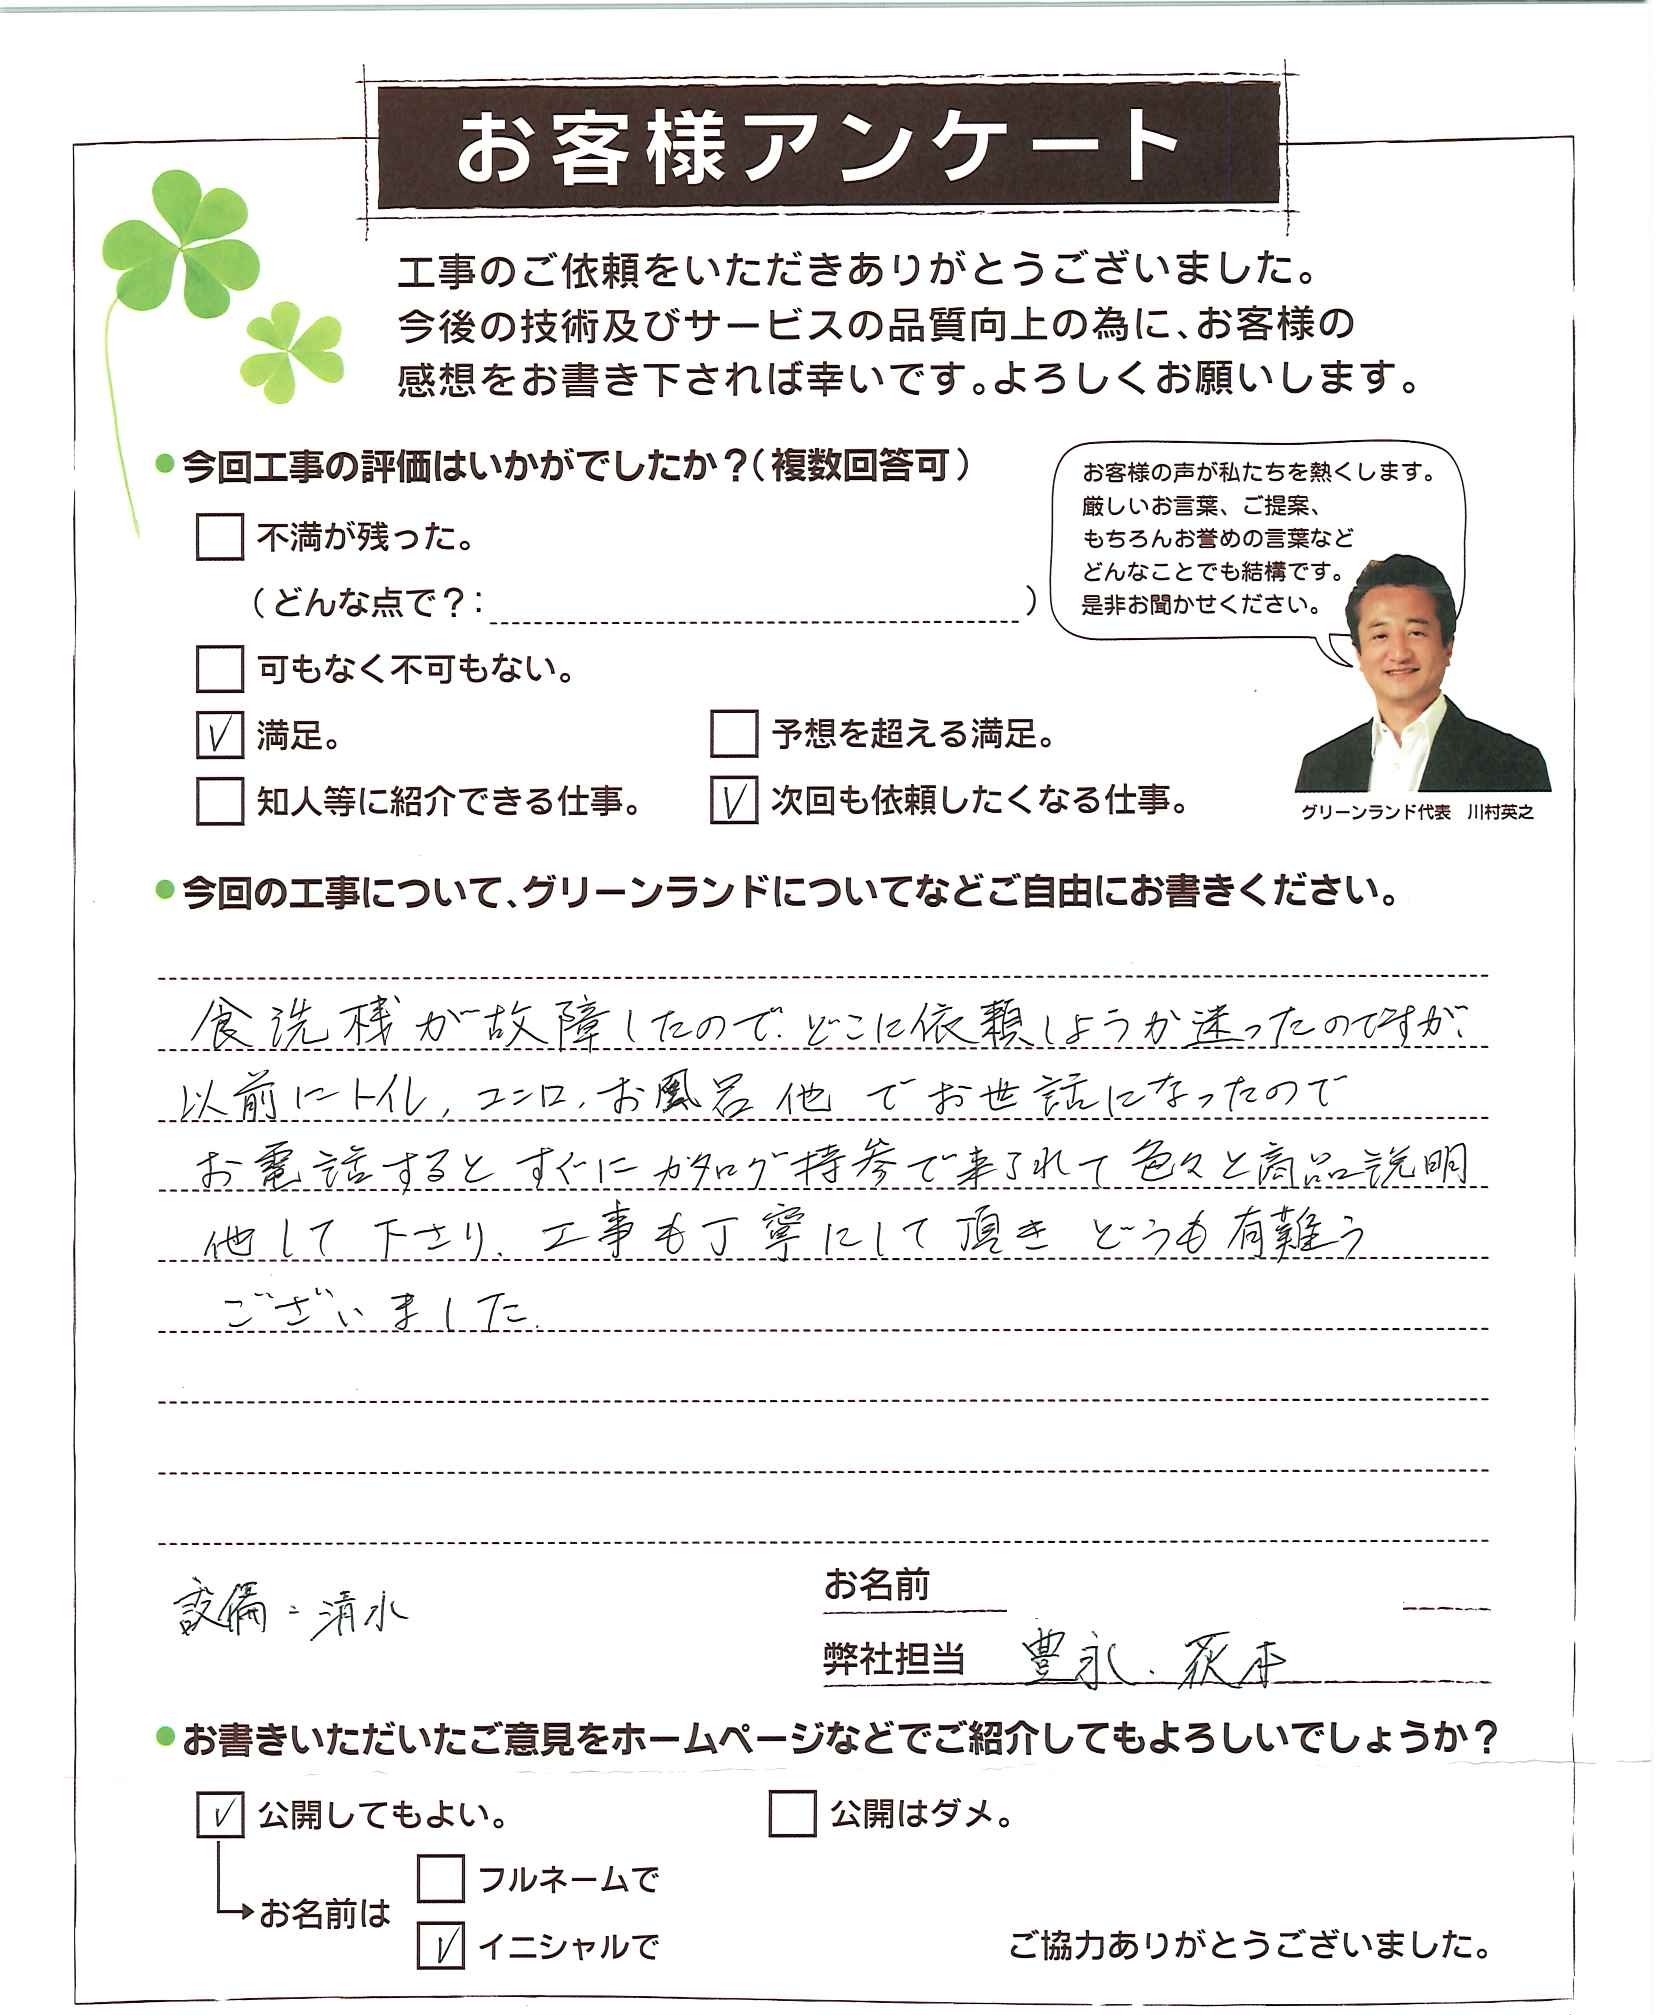 お客様アンケート
工事のご依頼をいただきありがとうございました。
今後の技術及びサービスの品質向上の為に、お客様の
感想をお書き下されば幸いです。よろしくお願いします。
●今回工事の評価はいかがでしたか？（複数回答可）
□ 不満が残った。
（どんな点で？：　）
□ 可もなく不可もない。
☑ 満足。　□ 予想を超える満足。
□ 知人等に紹介できる仕事。　☑ 次回も依頼したくなる仕事。
お客様の声が私たちを熱くします。
厳しいお言葉、ご提案、
もちろんお誉めの言葉など
どんなことでも結構です。
是非お聞かせください。
グリーンランド代表　川村英之
●今回の工事について、グリーンランドについてなどご自由にお書きください。
食洗桟が故障したので、どこに依頼しようか迷ったのですが、
以前にトイレ、コンロ、お風呂他でお世話になったので
お電話するとすぐにカタログ持参で来られて色々と商品説明
他して下さり、工事も丁寧にして頂きどうも有難う
ございました.
設備：清水
お名前
弊社担当　豊永．荻本
●お書きいただいたご意見をホームページなどでご紹介してもよろしいでしょうか？
☑ 公開してもよい。　□ 公開はダメ。
→お名前は
□ フルネームで
☑ イニシャルで
ご協力ありがとうございました。